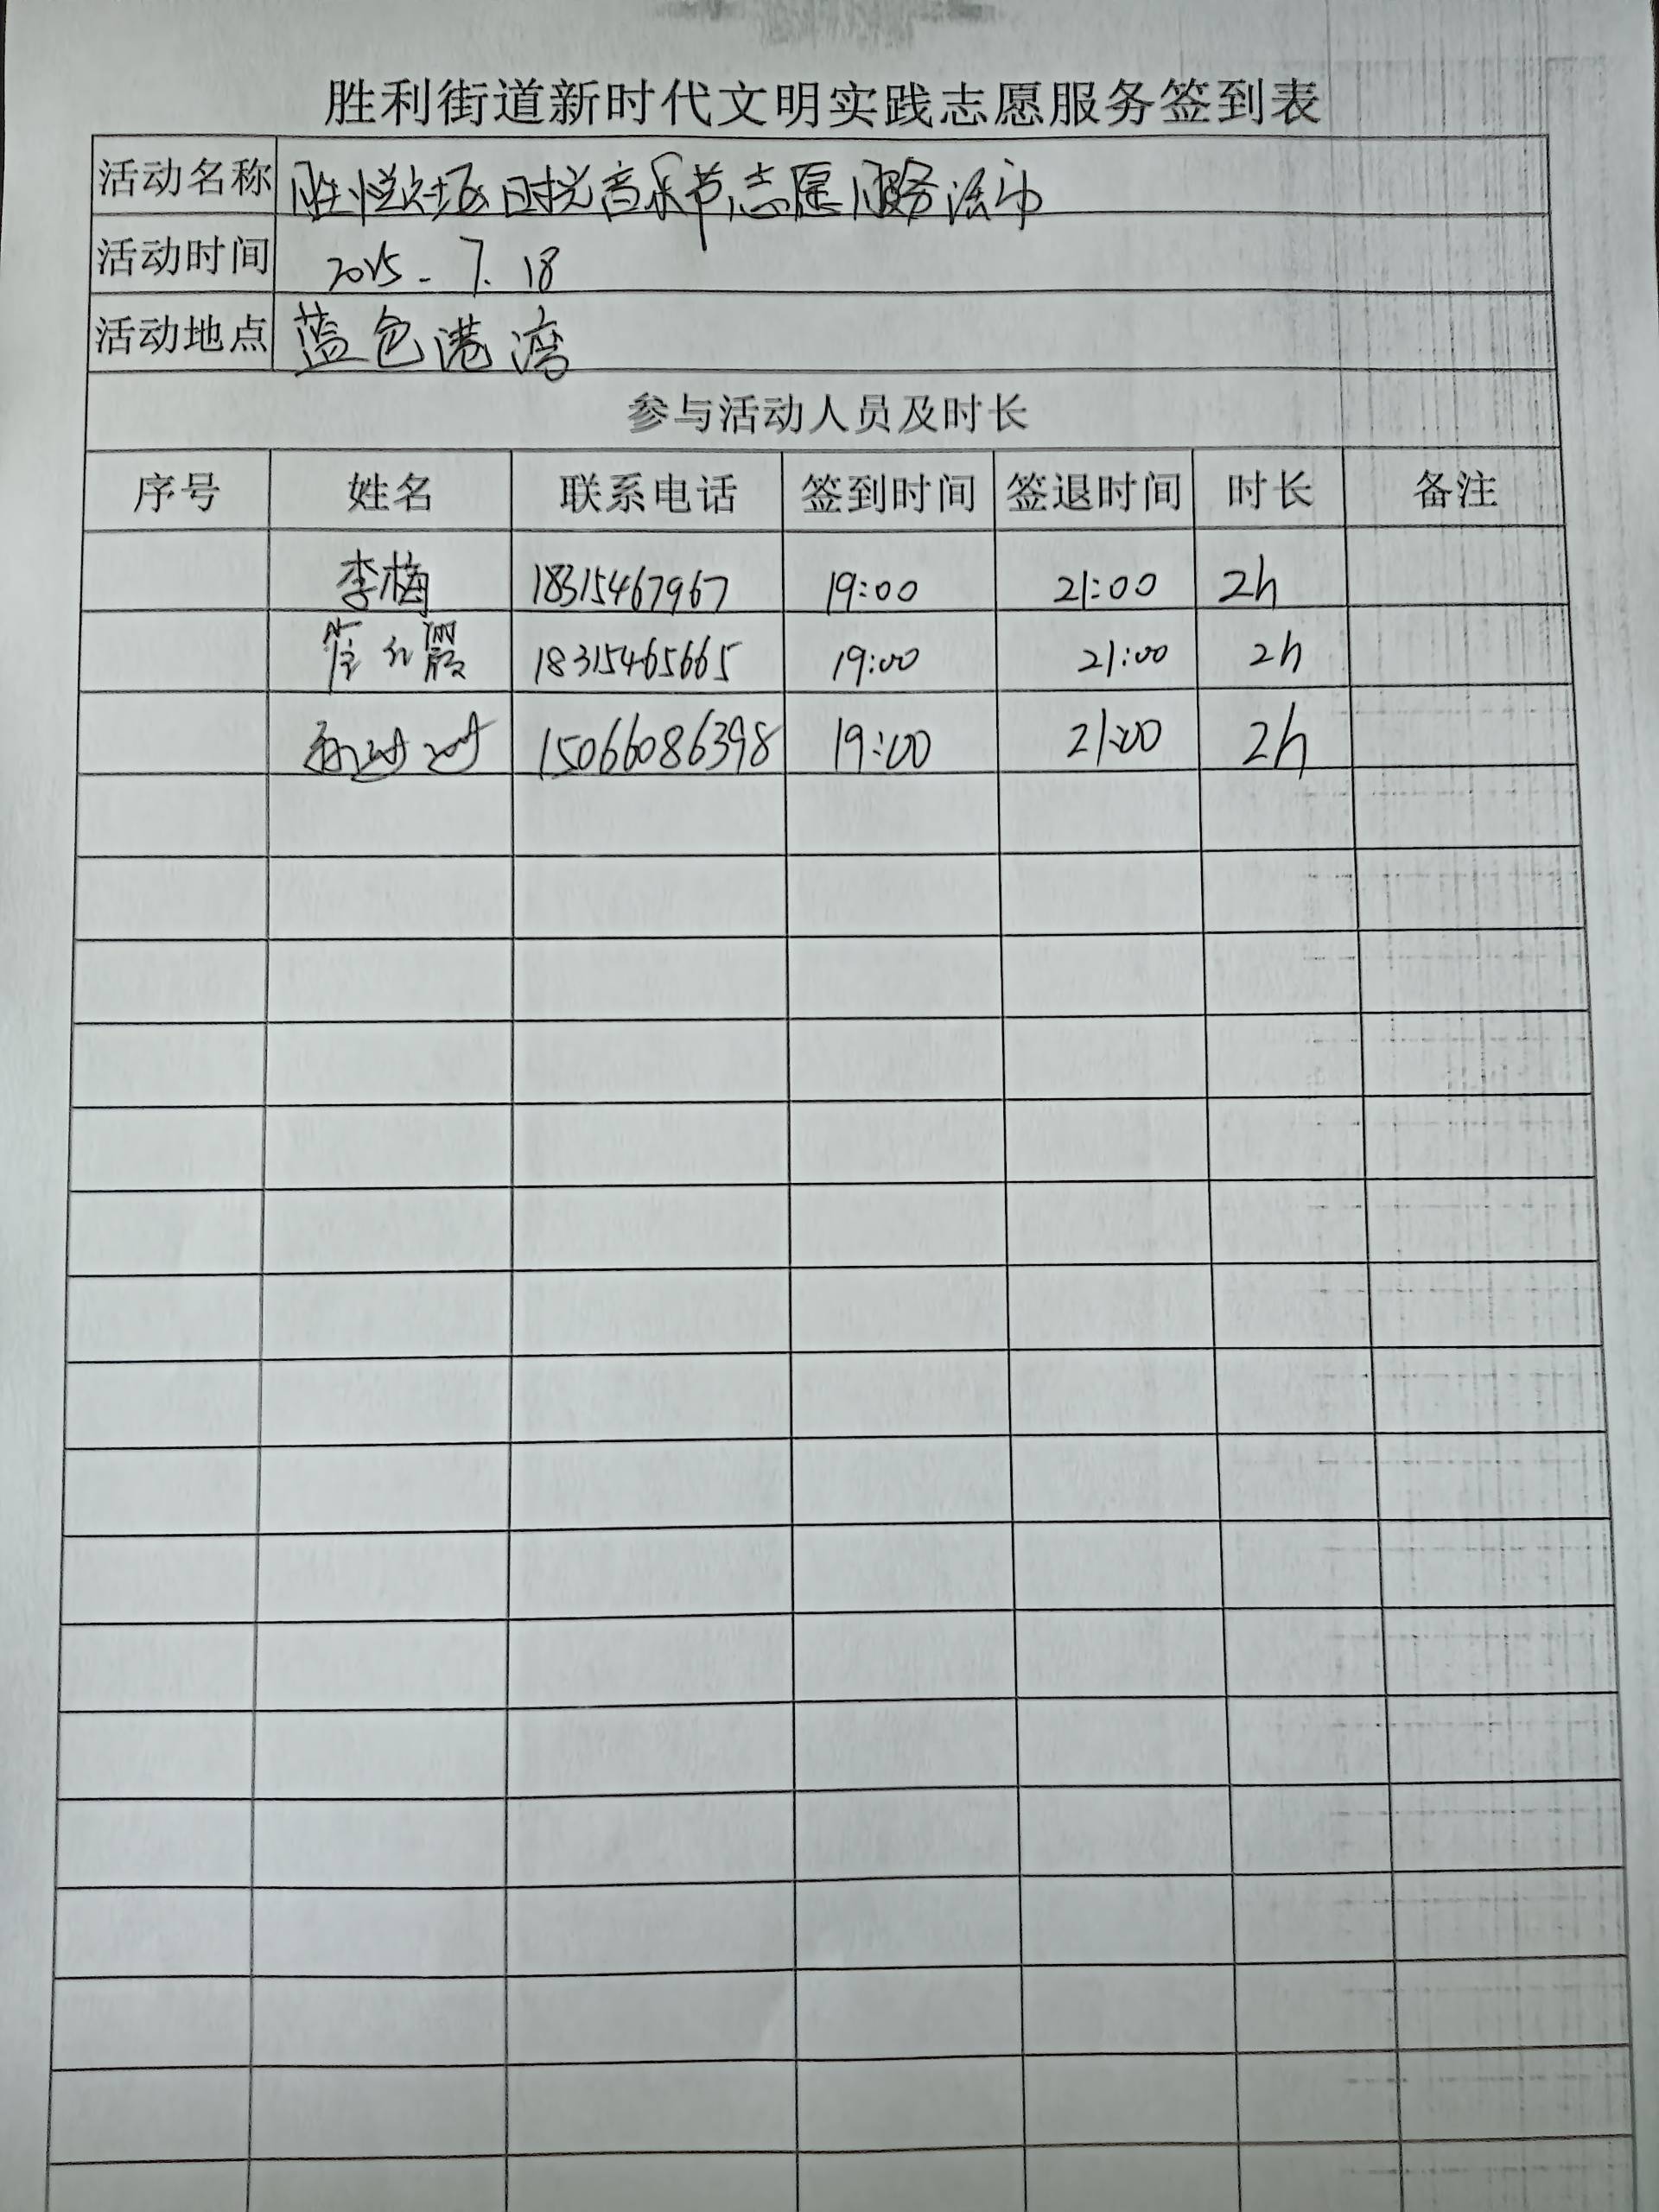 胜利街道新时代文明实践志愿服务签到表
活动名称 音乐节志愿服务活动
活动时间 2025.7.18
活动地点 蓝色港湾
参与活动人员及时长
序号 姓名 联系电话 签到时间 签退时间 时长 备注
李梅 18315467967 19:00 21:00 2h
18315465665 19:00 21:00 2h
15066086398 19:00 21:00 2h